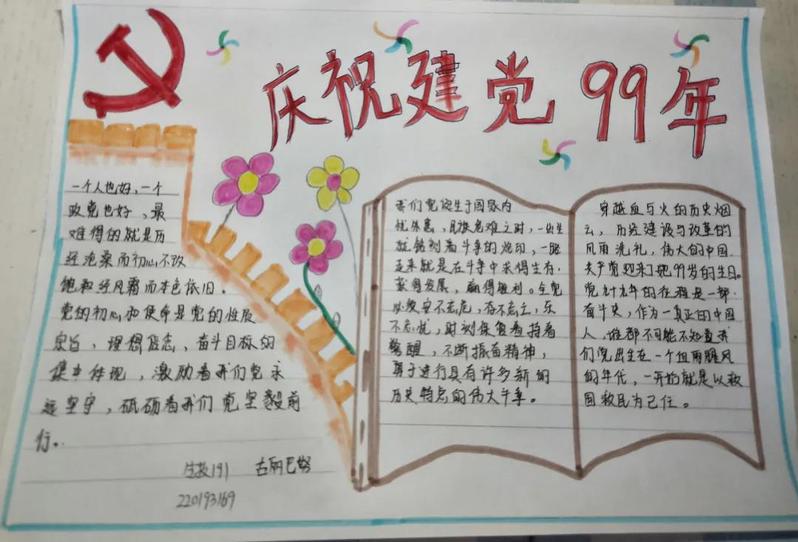 庆祝建党99年
一个人也好，一个
政党也好，最
难得的就是历
经沧桑而初心不改
饱经风霜而本色依旧，
党的初心和使命是党的性质
宗旨、理想信念、奋斗目标的
集中体现，激励着我们党永
远坚守，砥砺着我们党坚毅前
行。
生技191 古丽巴努
220193169
我们党诞生于国家内
忧外患，民族危难之时，一出生
就铭刻着斗争的烙印，一路
走来就是在斗争中求得生存，
获得发展，赢得胜利。全党
必须安不忘危，存不忘亡，乐
不忘忧，时刻保查着持着
警醒，不断振奋精神，
勇于进行具有许多新的
历史特点的伟大斗争。
穿越血与火的历史烟
云，历经建设与改革的
风雨洗礼，伟大的中国
共产党迎来了她99岁的生日。
党九十九年的征程是一部
奋斗史，作为一真正的中国
人，谁都不可能不知道我
们党出生在一个狂雨腥风
的年代，一开始就是以救
国救民为己任。